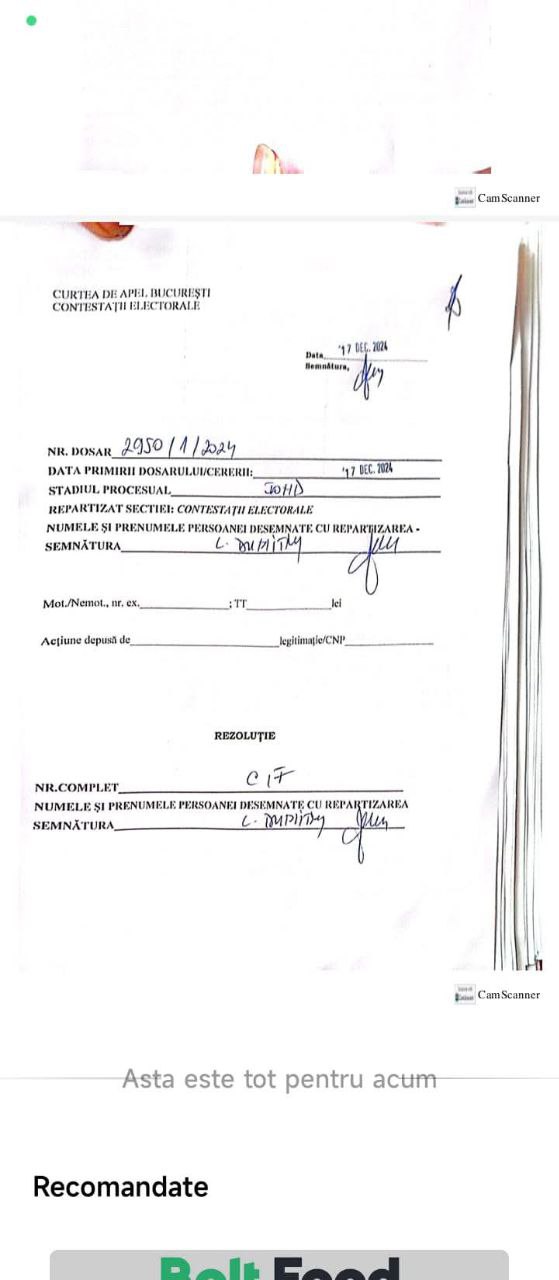 CamScanner
CURTEA DE APEL BUCUREȘTI
CONTESTAȚII ELECTORALE
Data, 17 DEC. 2024
Semnătura,
NR. DOSAR 2950/1/2024
DATA PRIMIRII DOSARULUI/CERERII: 17 DEC. 2024
STADIUL PROCESUAL
REPARTIZAT SECTIEI: CONTESTAȚII ELECTORALE
NUMELE ȘI PRENUMELE PERSOANEI DESEMNATE CU REPARTIZAREA -
SEMNĂTURA
Mot./Nemot., nr. ex. : TT lei
Acțiune depusă de legitimație/CNP
REZOLUȚIE
NR.COMPLET
NUMELE ȘI PRENUMELE PERSOANEI DESEMNATE CU REPARTIZAREA
SEMNĂTURA
CamScanner
Asta este tot pentru acum
Recomandate
Bolt Food